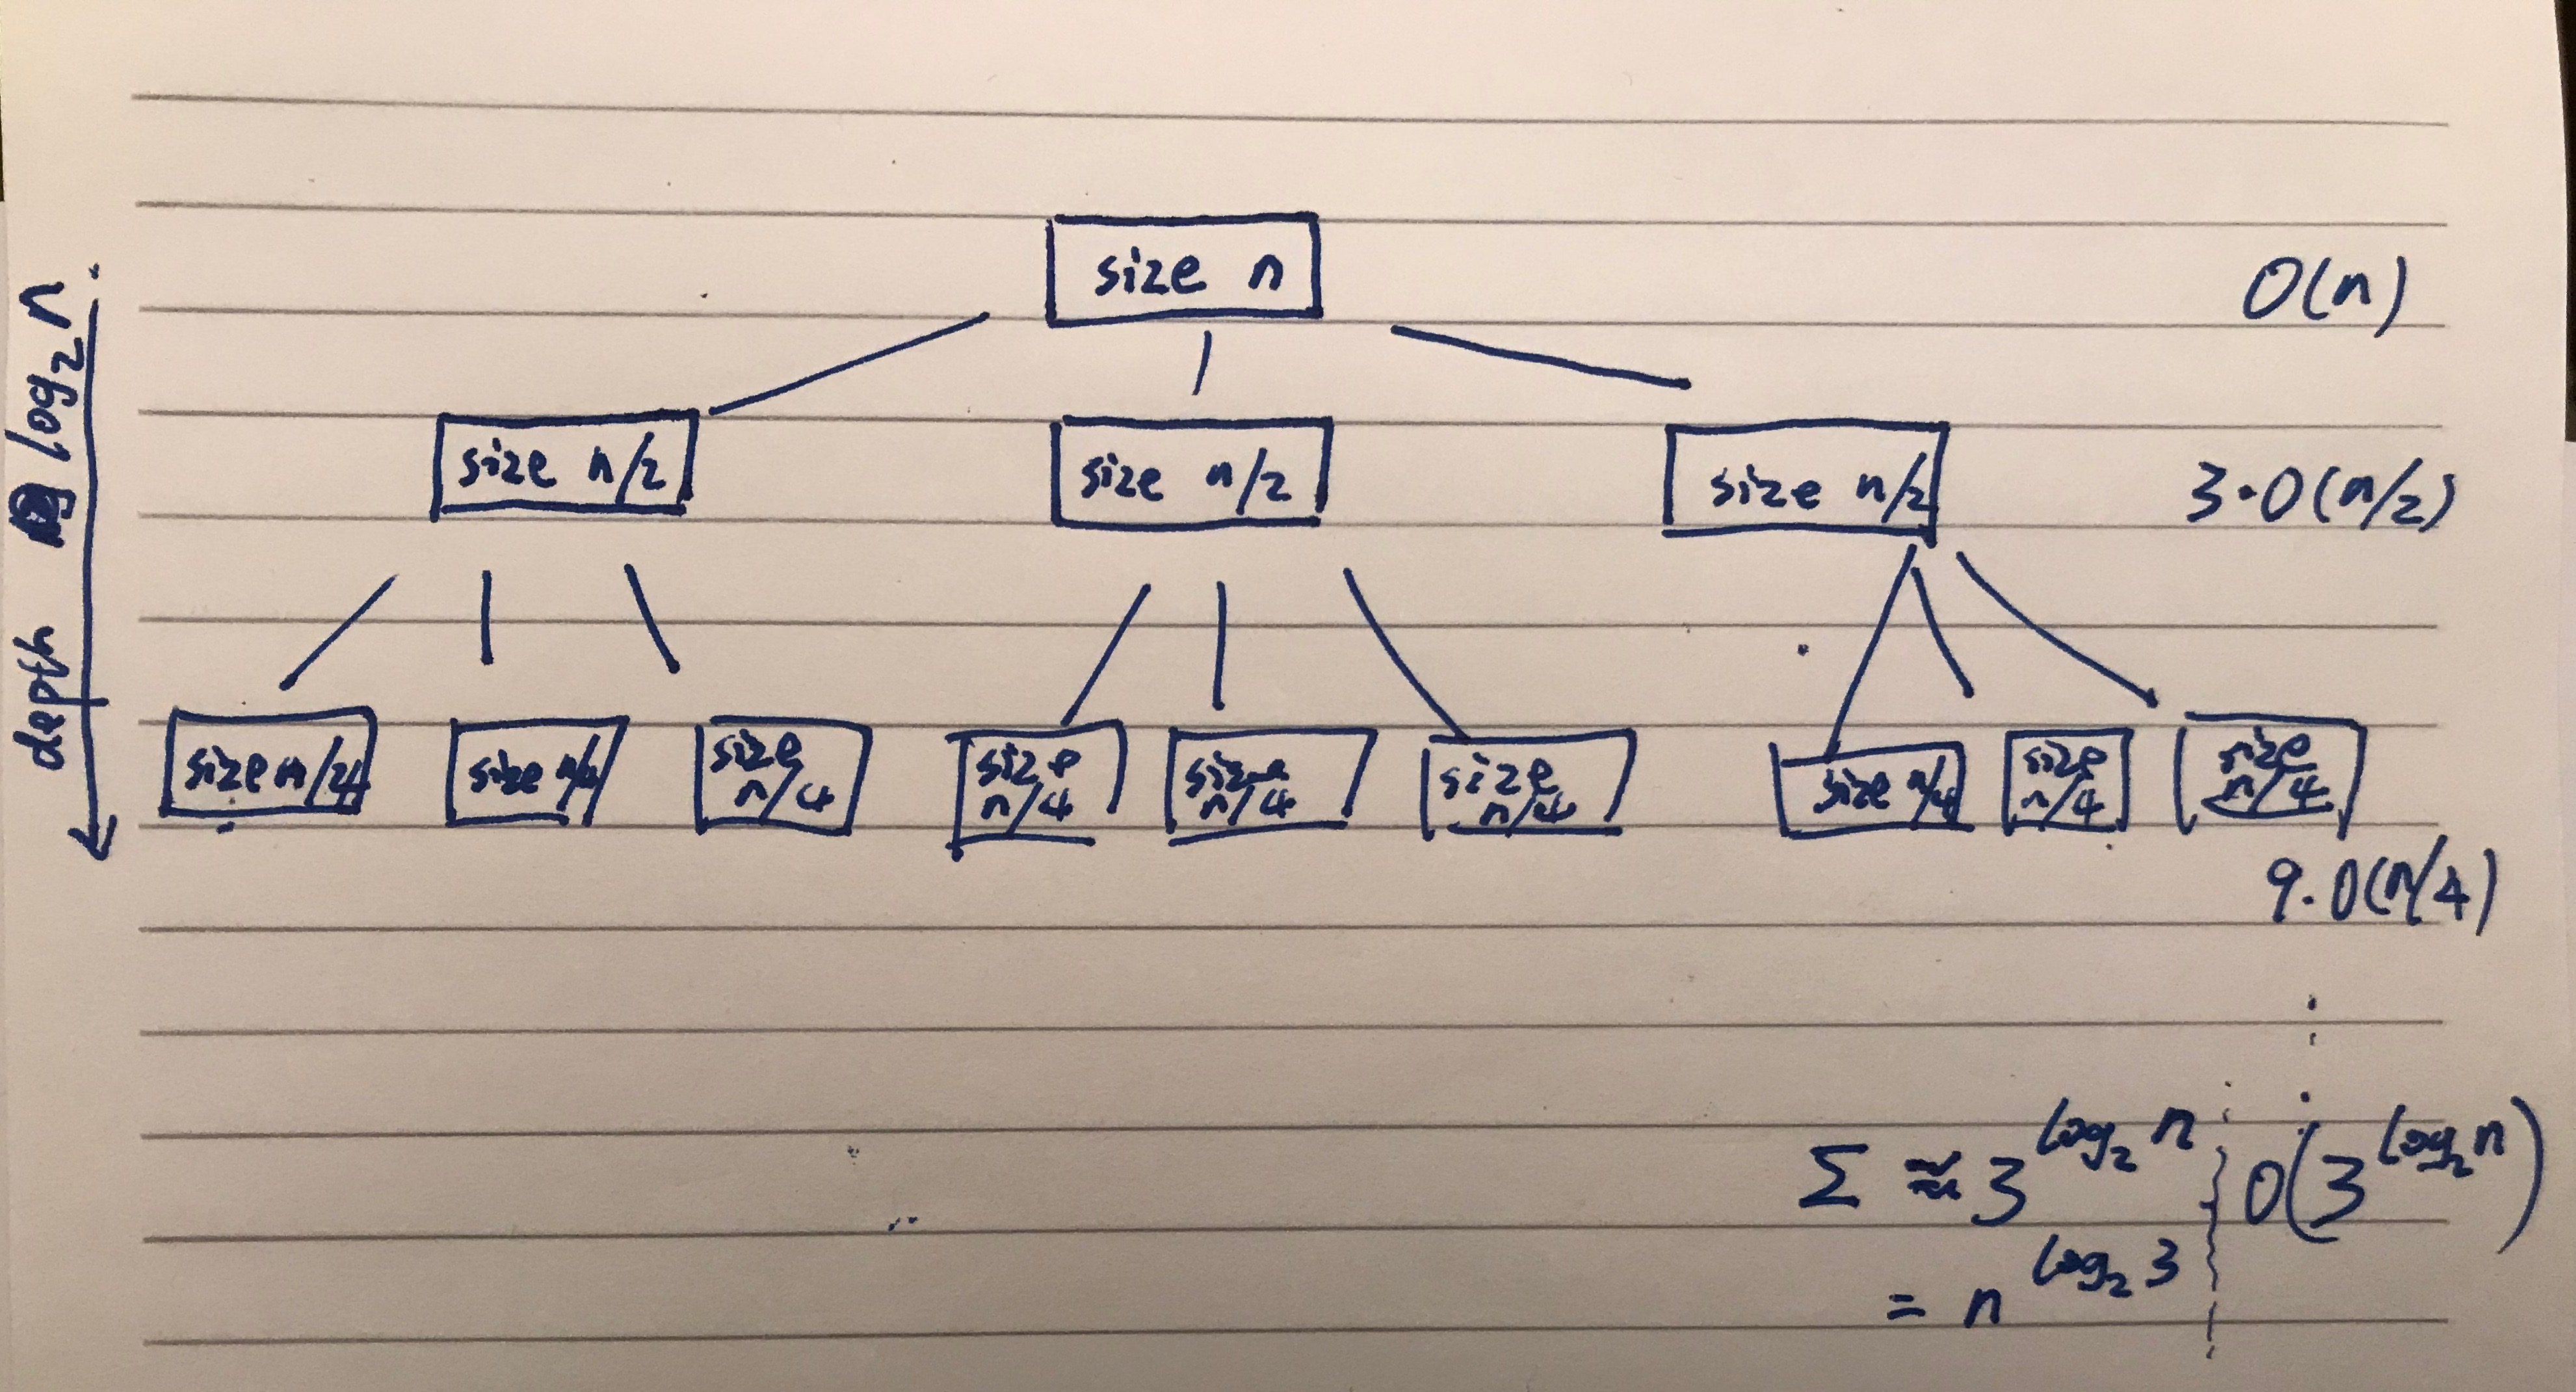 size n
O(n)
depth log₂ n
size n/2
size n/2
size n/2
3·O(n/2)
size n/4
size n/4
size
n/4
size
n/4
size
n/4
size
n/4
size n/4
size
n/4
size
n/4
9·O(n/4)
Σ ≈ 3^log₂ n
O(3^log₂ n)
= n^log₂ 3